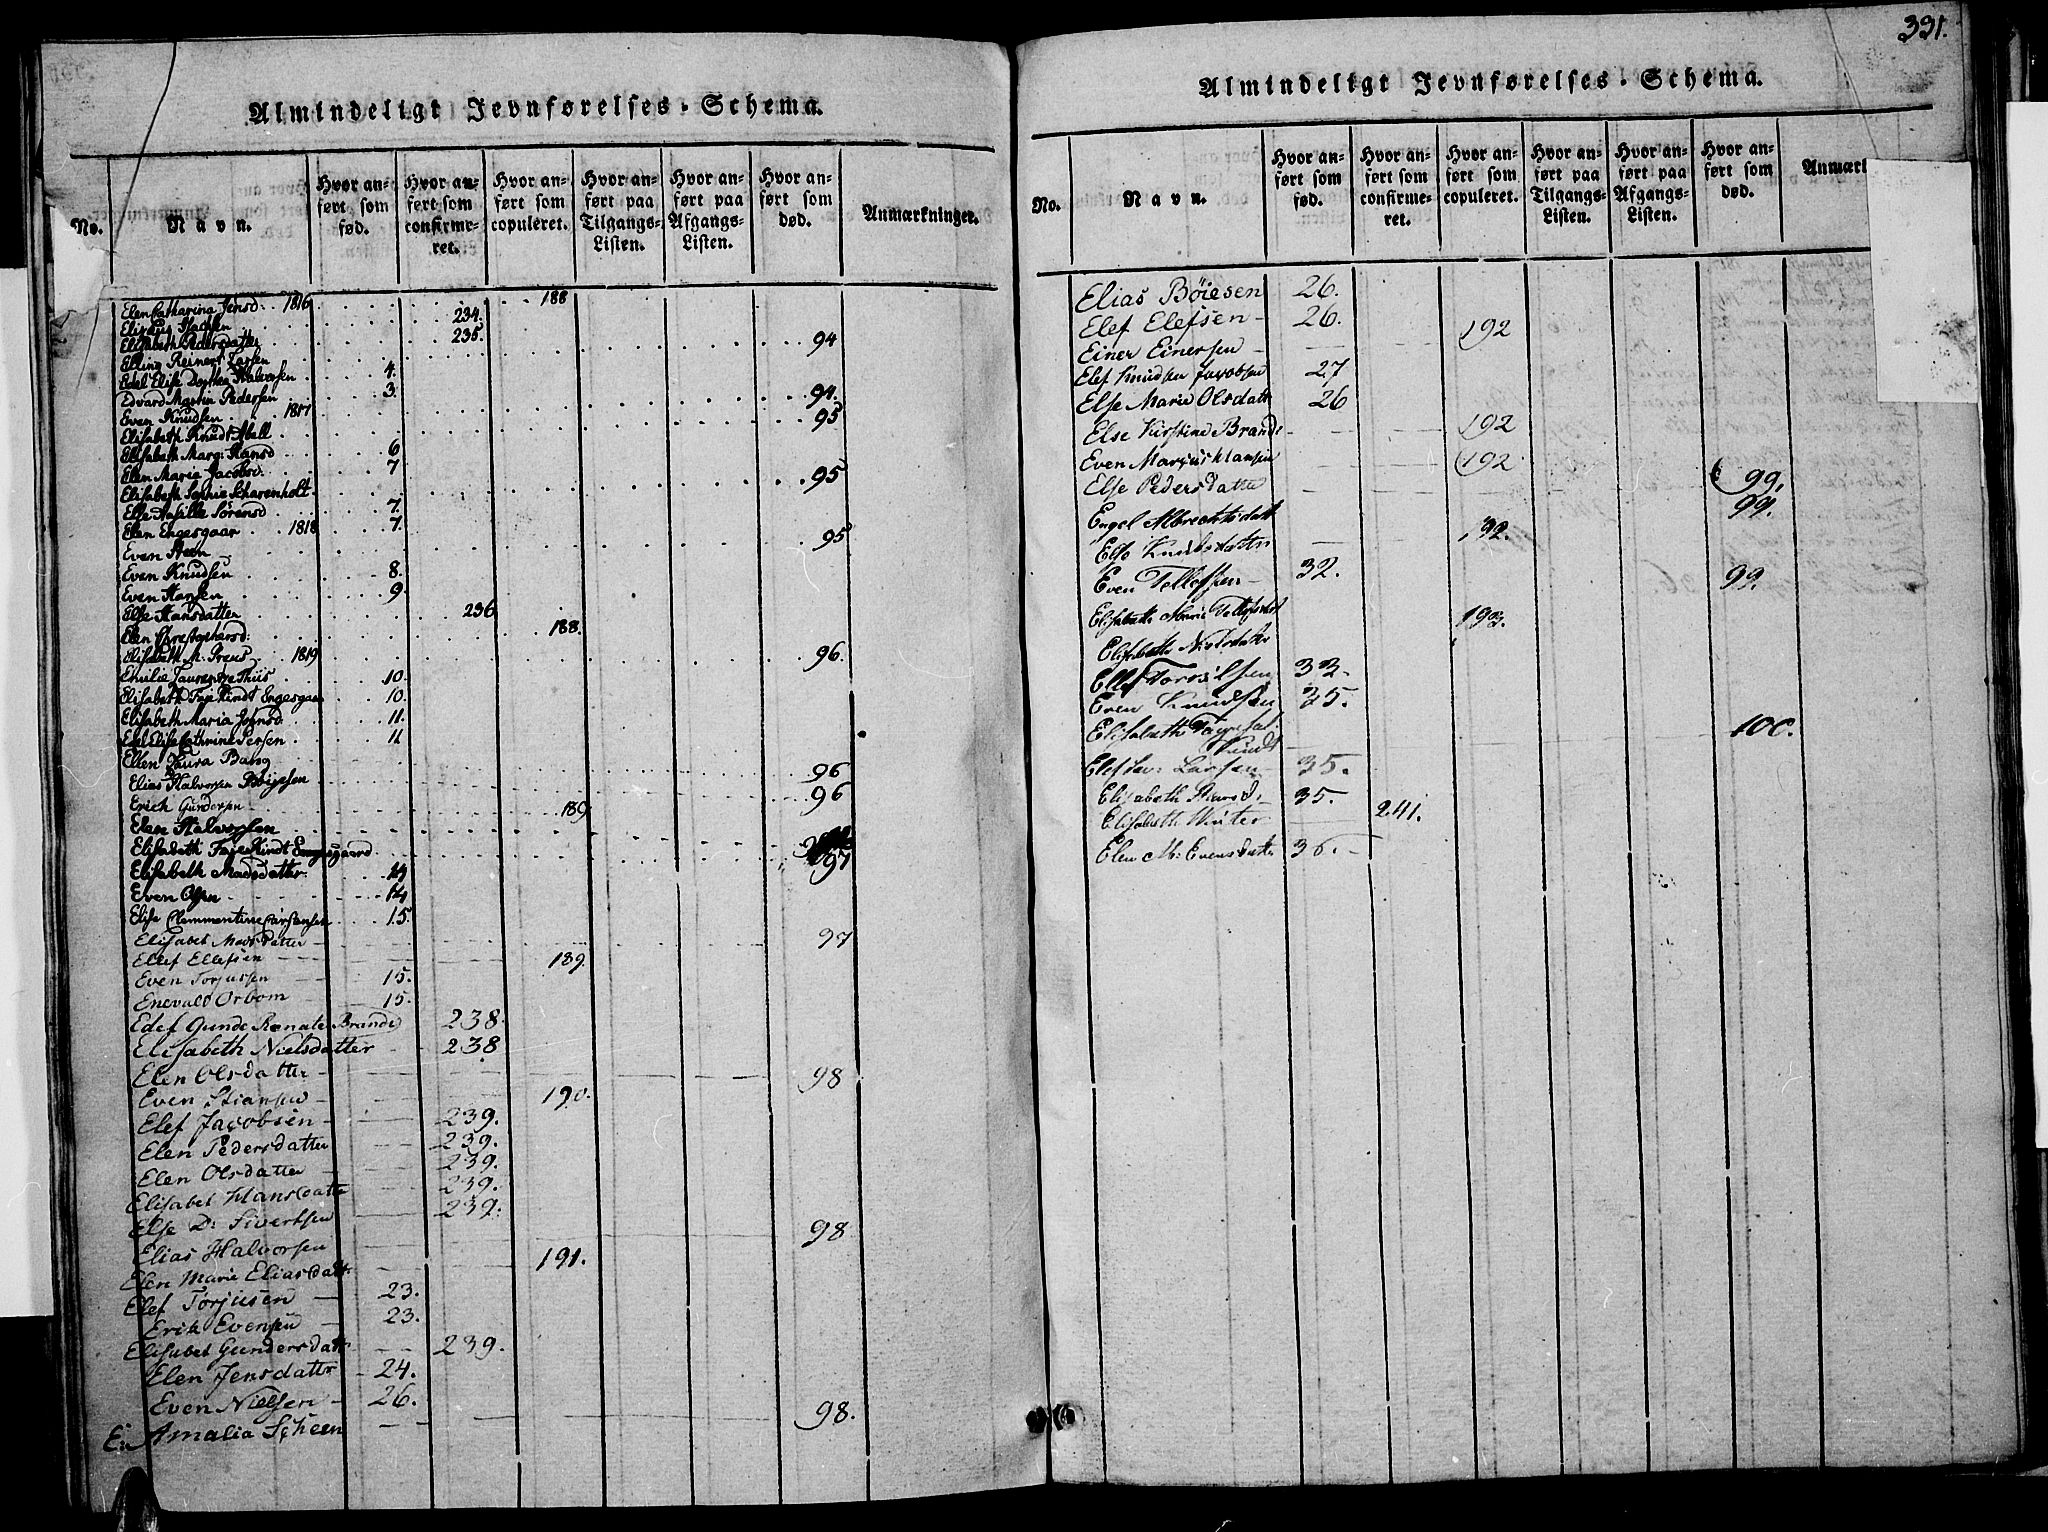 331.
Almindeligt Jevnførelses-Schema.
No.
Navn.
Hvor anført som fød.
Hvor anført som confirmeret.
Hvor anført som copuleret.
Hvor anført paa Tilgangs-Listen.
Hvor anført paa Afgangs-Listen.
Hvor anført som død.
Anmærkninger.
Elen Catharina Jensd. 1816 188
234.
Elisabeth Pedersdatter 235.
Elling Reinert Larsen 94
Edel Elise Dorthea Halvorsen 4.
Edvard Martin Pedersen 3.
Even Knudsen 1817 94.
Elisabeth Knudt Abell 95
Elisabeth Marg: Hansd 6
Elen Maria Jacobsd. 7
Elisabeth Sophie Scharenholt 95
Else Sørensd 7.
Elen Engesgaar 1818 7.
Even Steen 95
Even Knudsen 8.
Even Hansen 9.
Else Hansdatter 236
Elen Christophersd: 188.
Elisabeth M. Preus 1819 96.
Emilie Thiis 10.
Elisabeth Faye Kindt Engesgaar 10.
Elisabeth Maria Johnsd. 11.
Edel Elise Cathrine Persen 11
Ellen Laura Bang
Elias Halvorsen Bøyesen 96
Erich Gundersen 96
Elen Halvorsen 189
Elisabeth Faye Kindt Engesgaard 97
Elisabeth Madsdatter 14
Even Olsen 14
Elise Clemmentine Carstensen 15.
Elisabet Madsdatter 97
Elef Ellefsen 189.
Even Torjussen 15.
Enevald Orbom 15.
Edel Gunde Renate Brandt 238.
Elisabeth Nielsdatter 238
Elen Olsdatter 98
Even Stiansen 190.
Elef Jacobsen 239.
Elen Pedersdatter 239.
Elen Olsdatter 239.
Elisabet Hansdatter 239.
Else D: Sivertsen 239.
Elias Halvorsen 98
Elen Marie Eliasdatr 191.
Elef Torjusen 23.
Erik Evensen 23.
Elisabet Gundersdatr 239.
Elen Jensdattr 24.
Even Nielsen 26.
Amalia Scheen 98.
Almindeligt Jevnførelses-Schema.
No.
Navn.
Hvor anført som fød.
Hvor anført som confirmeret.
Hvor anført som copuleret.
Hvor anført paa Tilgangs-Listen.
Hvor anført paa Afgangs-Listen.
Hvor anført som død.
Anmærk
Elias Böiesen 26.
Elef Elefsen 26.
Einer Einersen 192
Elef Knudsen Jacobsen 27
Else Marie Olsdatr 26
Else Kirstine Brandt 192
Even Marcus Hansen 192
Else Pedersdatter 99.
Engel Albrechtsdatt 99.
Else Knudsdattr 192.
Even Tellefsen 32.
Elisabeth Marie Tellefsdatt 99.
Elisabeth Nielsdatter 193.
Ellef Torgilsen 33.
Even Knudsen 35.
Elisabeth
Kindt 100.
Elef Larsen 35.
Elisabeth 35.
Elisabeth Winter 241.
Elen M: Evensdattr 36.